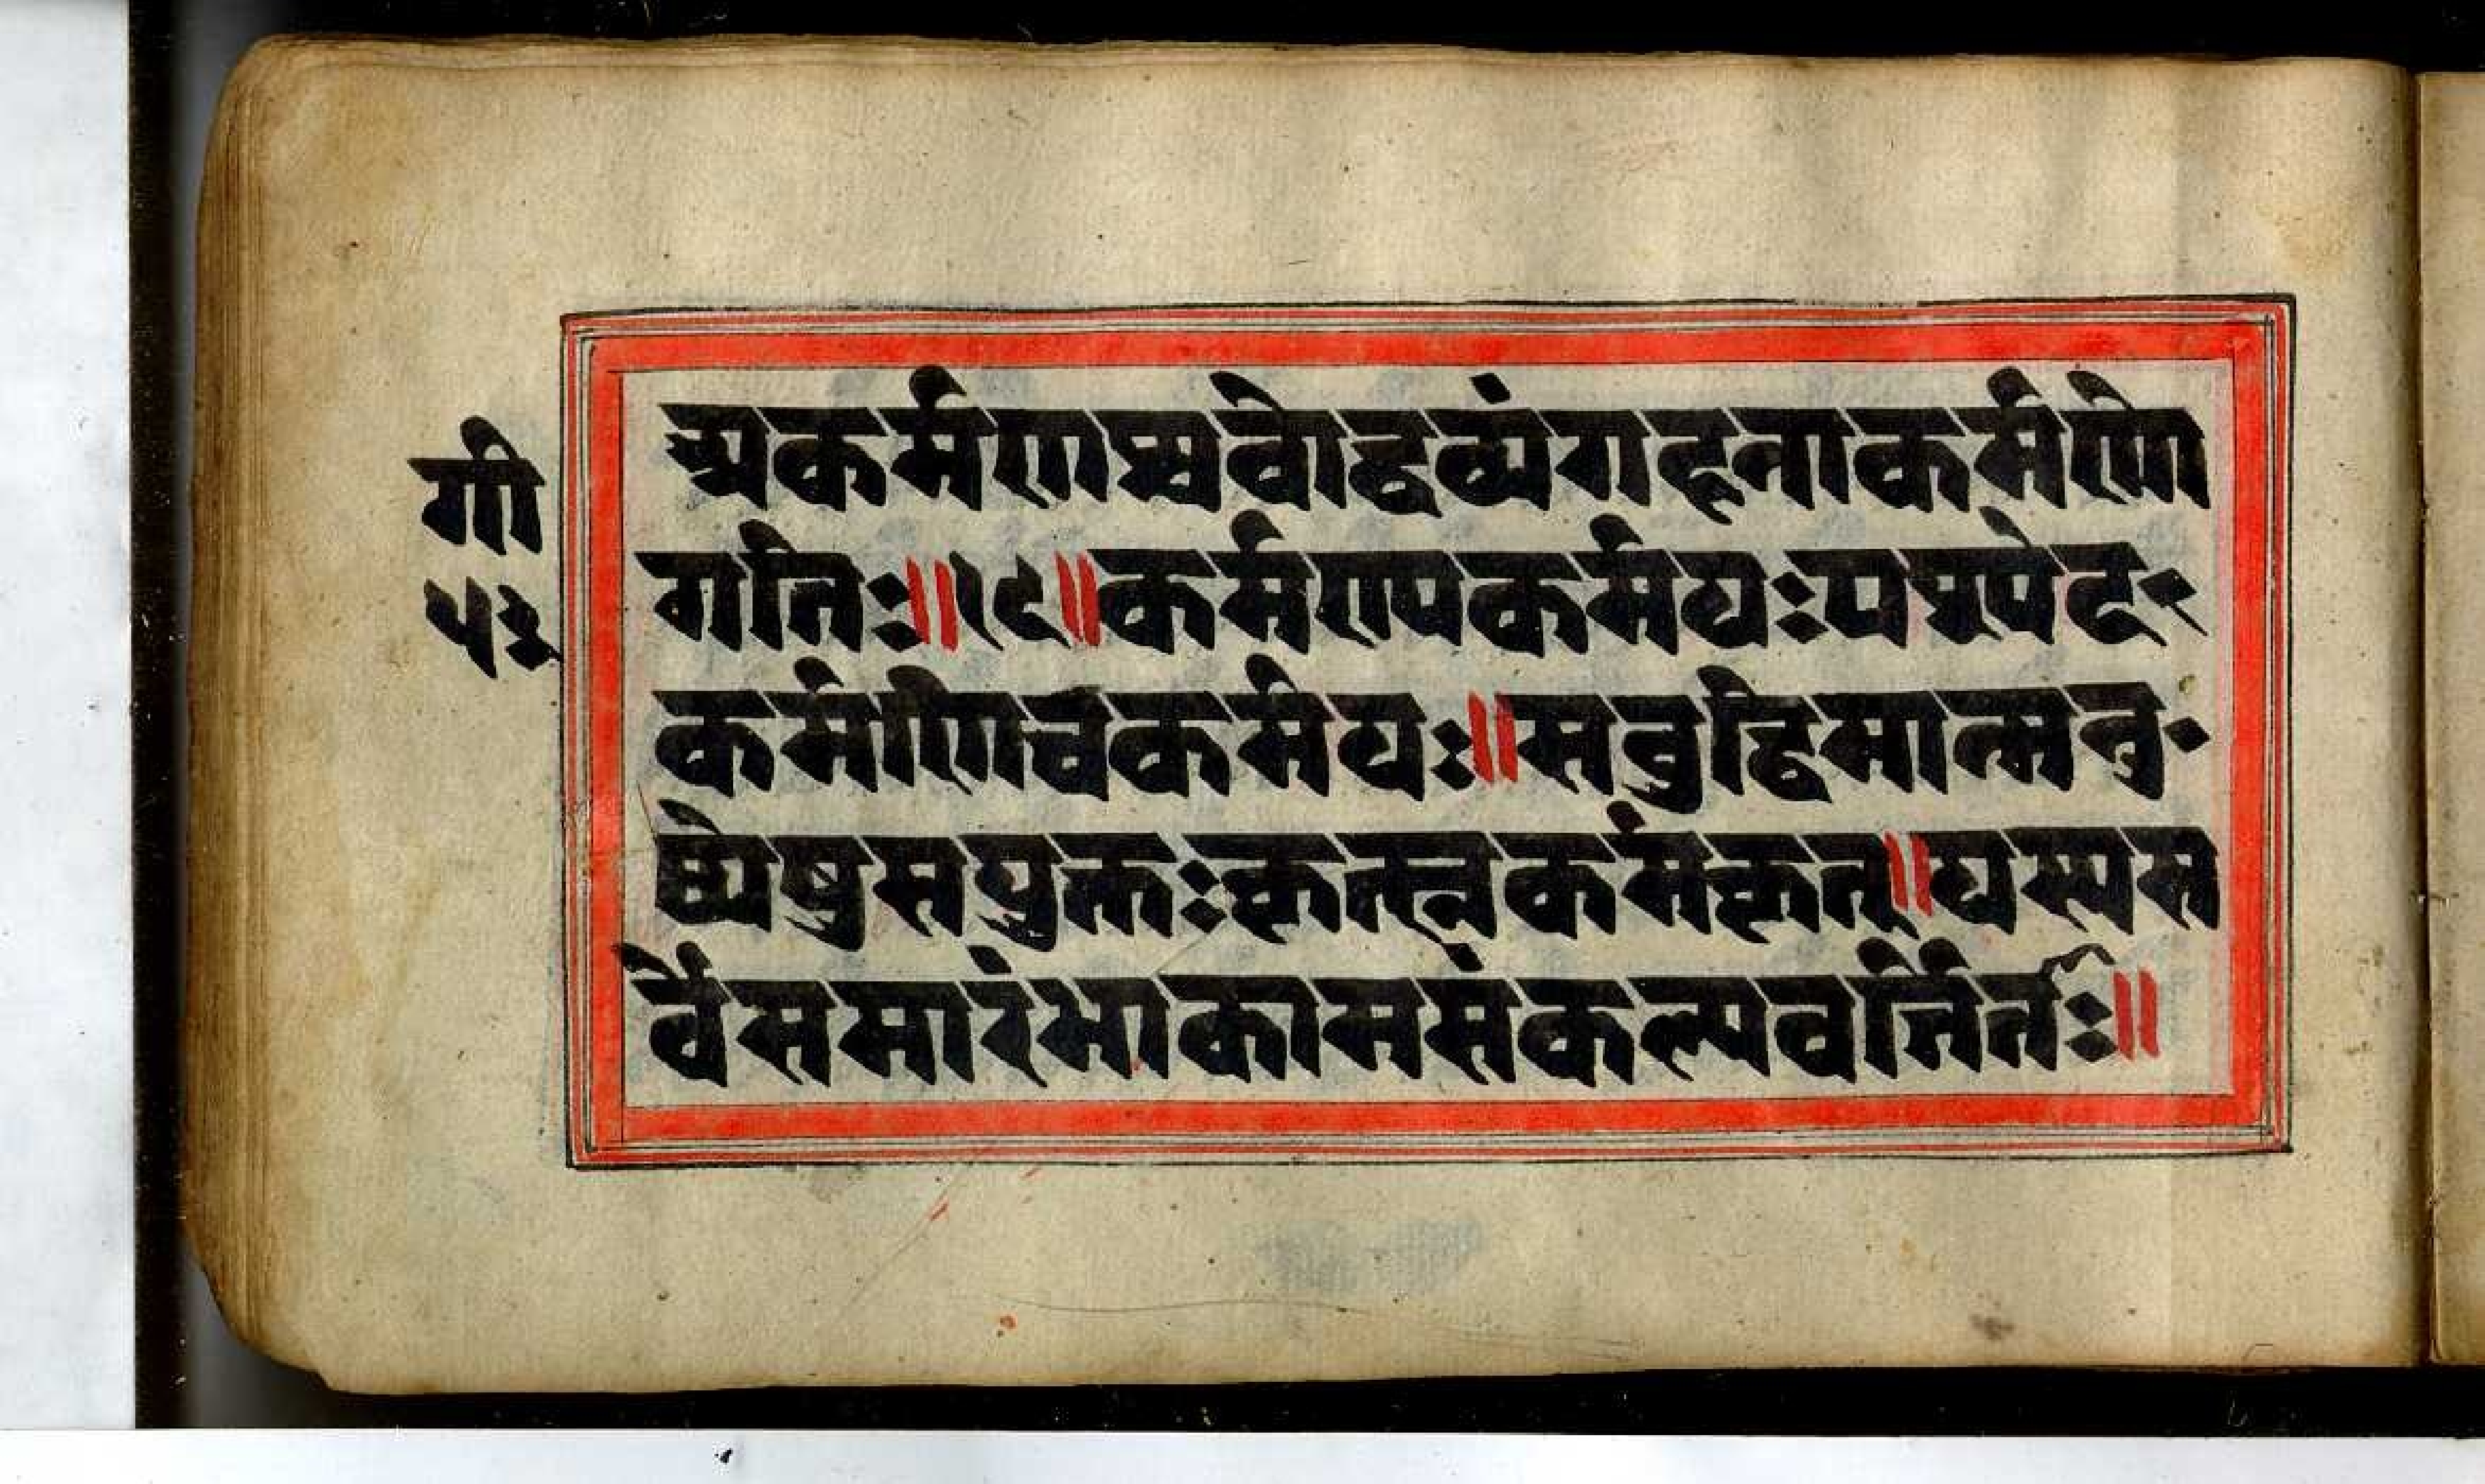 गी
५३
अकर्मणश्चवोद्धव्यंगहनाकर्मणो
गतिः॥१८॥कर्मण्यकर्मयःपश्येद-
कर्मणिचकर्मयः॥सबुद्धिमान्मनु-
ष्येषुसयुक्तःकृत्स्नकर्मकृत्॥यस्यस
र्वेसमारंभाकामसंकल्पवर्जितः॥